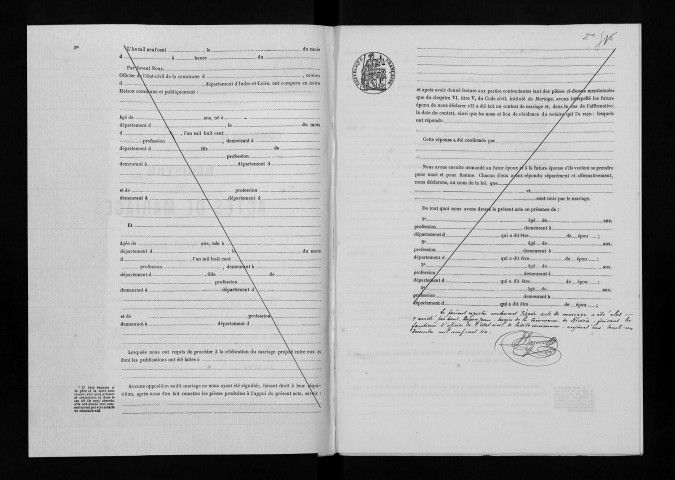 L'an mil neuf cent , le du mois
d à heure du
Par devant Nous,
Officier de l'état-civil de la commune d , canton
d , département d'Indre-et-Loire, ont comparu en notre
Maison commune et publiquement :
âgé de ans, né à
département d , le du mois
d , l'an mil huit cent
profession , demeurant à
département d fils de
profession
demeurant à département d
et de profession
demeurant à département d
Et
âgée de ans, née à
département d , le du mois
d , l'an mil huit cent
profession, demeurant à
département d , fille de
profession
demeurant à département d
et de profession
demeurant à département d
Lesquels nous ont requis de procéder à la célébration du mariage projeté entre eux et
dont les publications ont été faites à
Aucune opposition audit mariage ne nous ayant été signifiée, faisant droit à leur réqui-
sition, après nous être fait remettre les pièces produites à l'appui du présent acte, savoir :
RÉPUBLIQUE FRANÇAISE
et après avoir donné lecture aux parties contractantes tant des pièces ci-dessus mentionnées
que du chapitre VI, titre V, du Code civil, intitulé du Mariage, avons interpellé les futurs
époux de nous déclarer s'il a été fait un contrat de mariage et, dans le cas de l'affirmative,
la date du contrat, ainsi que les nom et lieu de résidence du notaire qui l'a reçu ; lesquels
ont répondu
Cette réponse a été confirmée par
Nous avons ensuite demandé au futur époux et à la future épouse s'ils veulent se prendre
pour mari et pour femme. Chacun d'eux ayant répondu séparément et affirmativement,
nous déclarons, au nom de la loi, que
et
sont unis par le mariage.
De tout quoi nous avons dressé le présent acte en présence de :
1° âgé de ans,
profession demeurant à
département d qui a dit être de épou ;
2° âgé de ans,
profession demeurant à
département d qui a dit être de épou ;
3° âgé de ans,
profession demeurant à
département d qui a dit être de épou ;
4° âgé de ans,
profession demeurant à
département d qui a dit être de épou ;
Le présent registre contenant actes de mariage a été clos
et arrêté par nous, maire de la Commune de
fonctions d'officier de l'état civil
décembre mil neuf cent